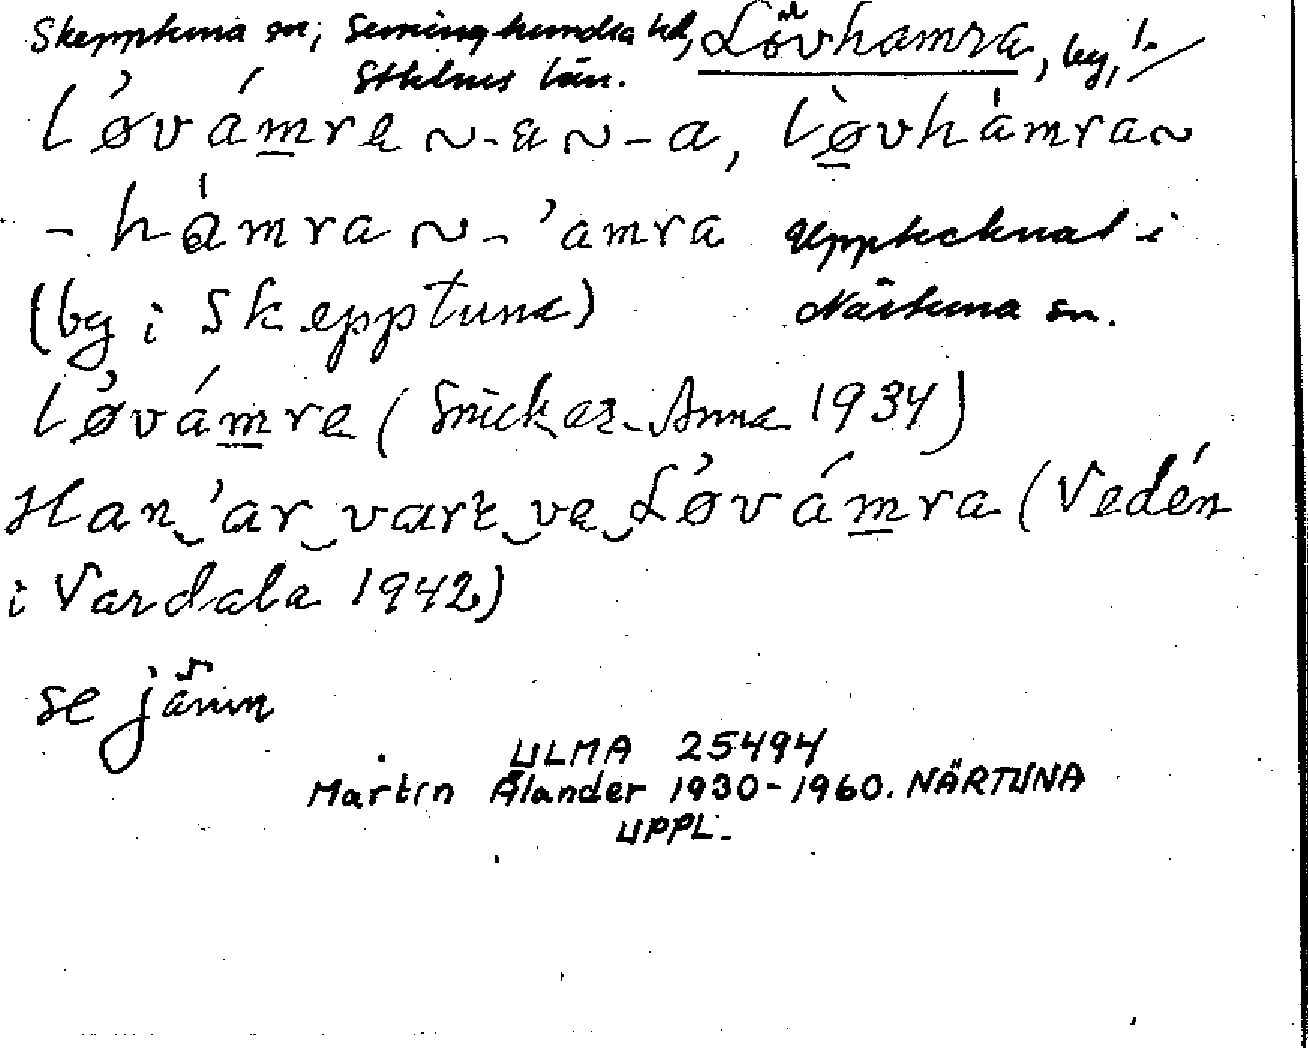 Skepptuna sn, Seminghundra hd, Lövhamra, by, 1.
Sthlms län.
løvámra ~ -a ~ -a, løvhàmra ~
- hàmra ~ - 'amra Upptecknat i
(by i Skepptuna) Närtuna sn.
løvámra (Snickar-Anna 1934)
Han 'ar vart va Løvámra (Vedén
i Vardala 1942)
se jämn
ULMA 25494
Martin Ålander 1930-1960. NÄRTUNA
UPPL.